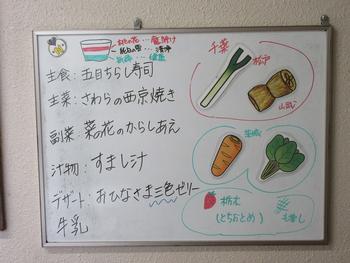 桃の花…魔除け
純白の雪…清浄
新緑…健康
主食：五目ちらし寿司
主菜：さわらの西京焼き
副菜：菜の花のからしあえ
汁物：すまし汁
デザート：おひなさま三色ゼリー
牛乳
千葉
松戸
茨城
栃木
(とちおとめ)